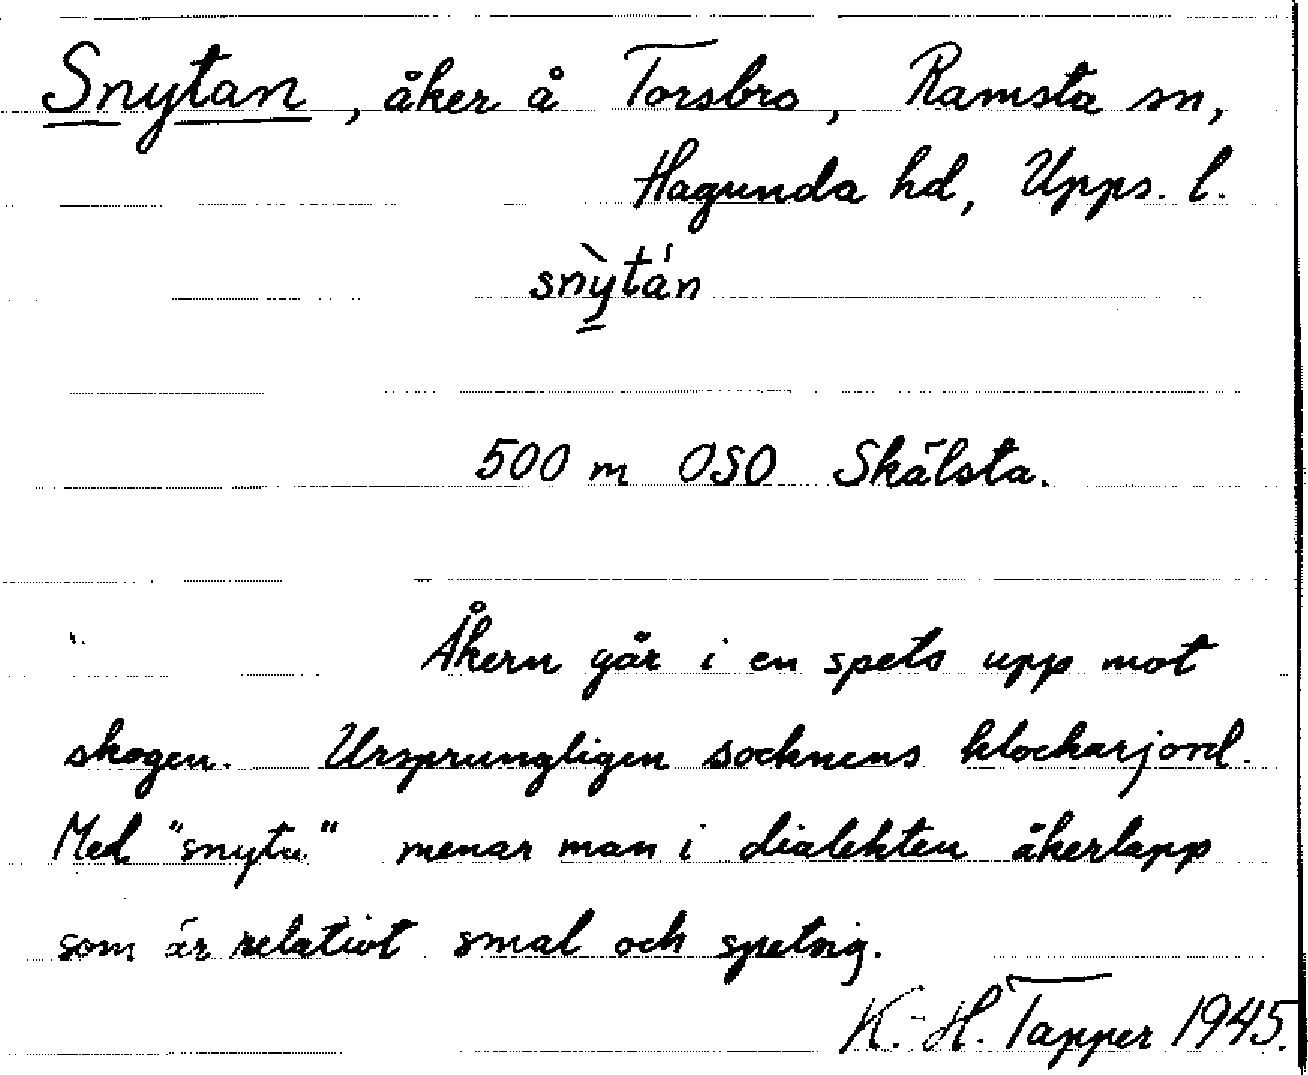 Snytan, åker å Torsbro, Ramsta sn,
Hagunda hd, Upps. l.
snỳtán
500 m OSO Skälsta.
Åkern går i en spets upp mot
skogen. Ursprungligen socknens klockarjord.
Med "snyta" menar man i dialekten åkerlapp
som är relativt smal och spetsig.
K.-H. Tapper 1945.